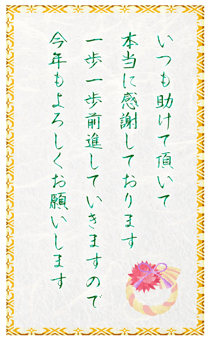 いつも助けて頂いて
本当に感謝しております
一歩一歩前進していきますので
今年もよろしくお願いします